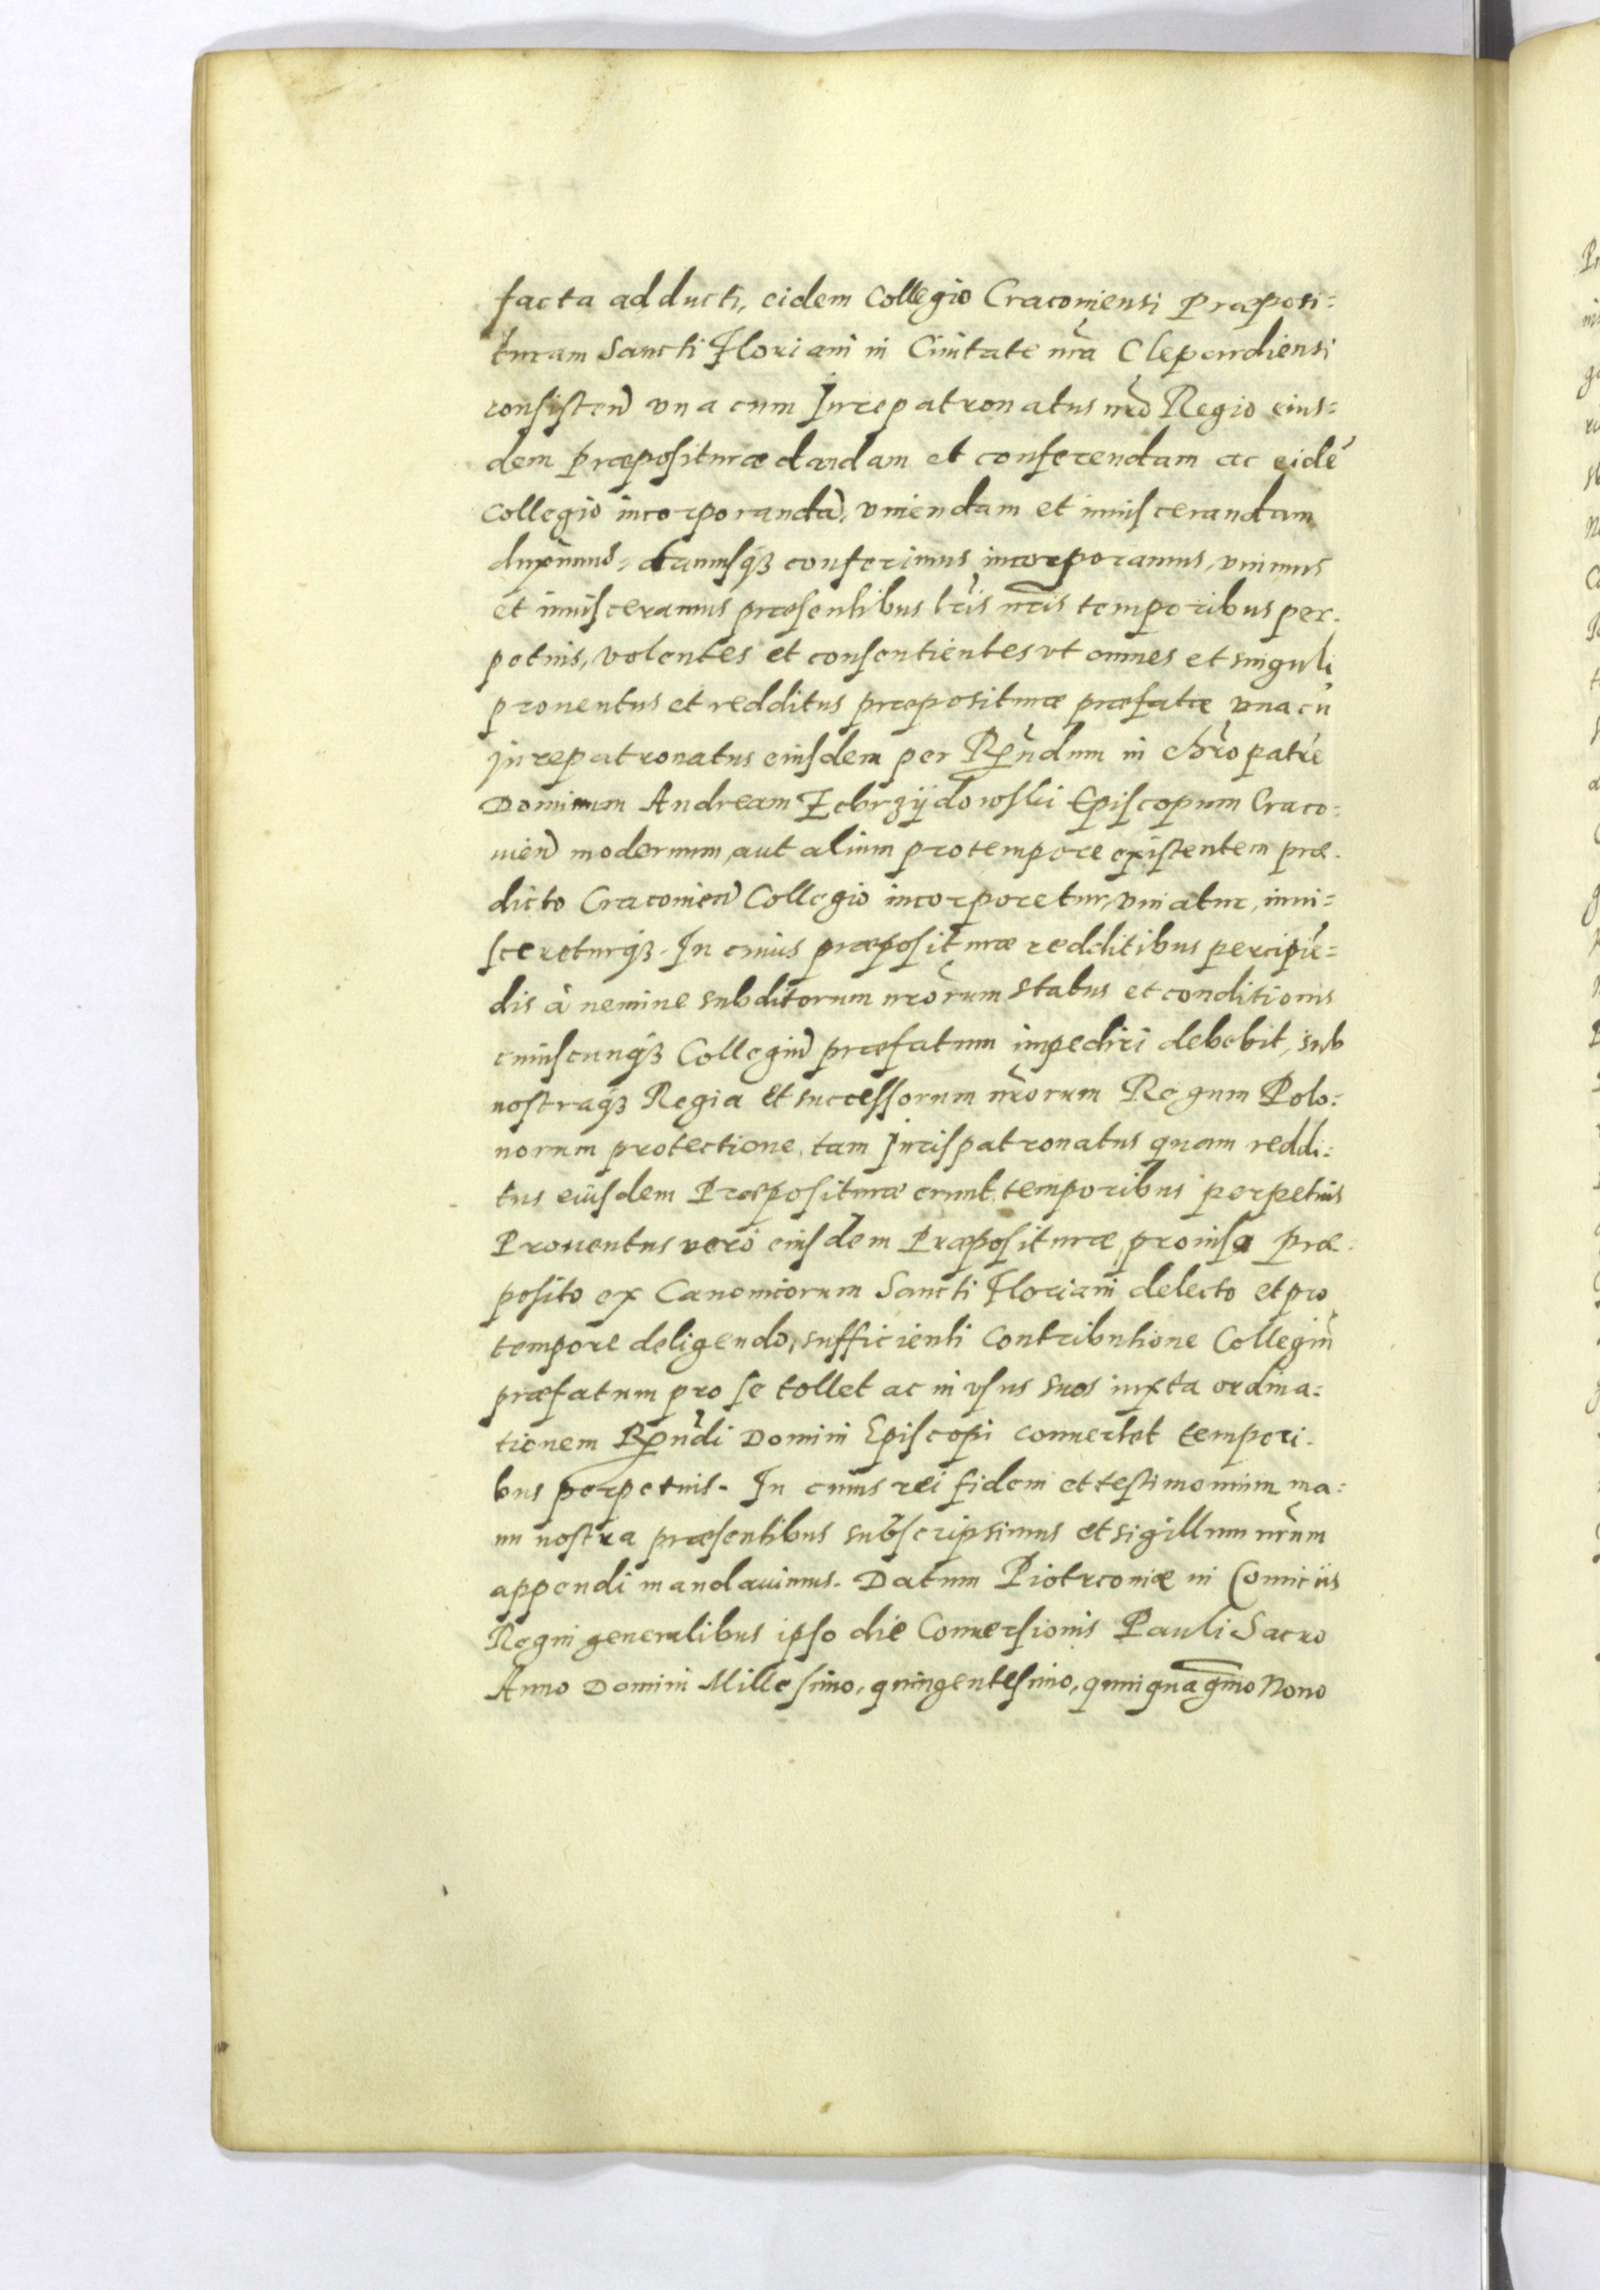 facta adducti, eidem Collegio Cracouiensi Præposi=
turam Sancti Floriani in Ciuitate nrã Clepardiensi
consisteñ vna cum Iurepatronatus nrõ Regio eius=
dem præpositurae dandam et conferendam ac eidẽ
Collegio incorporandã, vniendam et inuiscerandam
duximus, damusq3 conferimus incorporamus, vnimus
et inuisceramus præsentibus lrĩs nrĩs temporibus per-
petuis, volentes et consentientes vt omnes et singuli
prouentus et redditus præpositurae præfatæ vna cũ
iurepatronatus eiusdem per Rñdum in chrõ patrẽ
Dominum Andream Zebrzÿdowski Episcopum Craco-
uieñ modernum, aut alium protempore existentem præ-
dicto Cracouieñ Collegio incorporetur, vniatur, inui=
scereturq3. In cuius præpositurae redditibus percipiẽ=
dis à nemine subditorum nrõrum status et conditionis
cuiuscunq3 Collegiũ præfatum impediri debebit, sub
nostraq3 Regia et successorum nrõrum Regum Polo=
norum protectione, tam Iurispatronatus quam reddi=
tus eiusdem Præpositurae erunt temporibus perpetuis
Prouentus verò eiusdem Præpositurae, prouisa præ-
posito ex Canonicorum Sancti Floriani delecto et pro
tempore deligendo, sufficienti Contributione Collegiũ
præfatum pro se tollet ac in vsus suos iuxta ordina=
tionem Rñdi Domini Episcopi conuertet tempori-
bus perpetuis. In cuius rei fidem et testimonium ma=
nu nostra præsentibus subscripsimus et sigillum nrũm
appendi mandauimus. Datum Piotrcouiæ in Comicijs
Regni generalibus ipso die Conuersionis Pauli Sacro
Anno Domini Millesimo, quingentesimo, quinquagmõ Nono